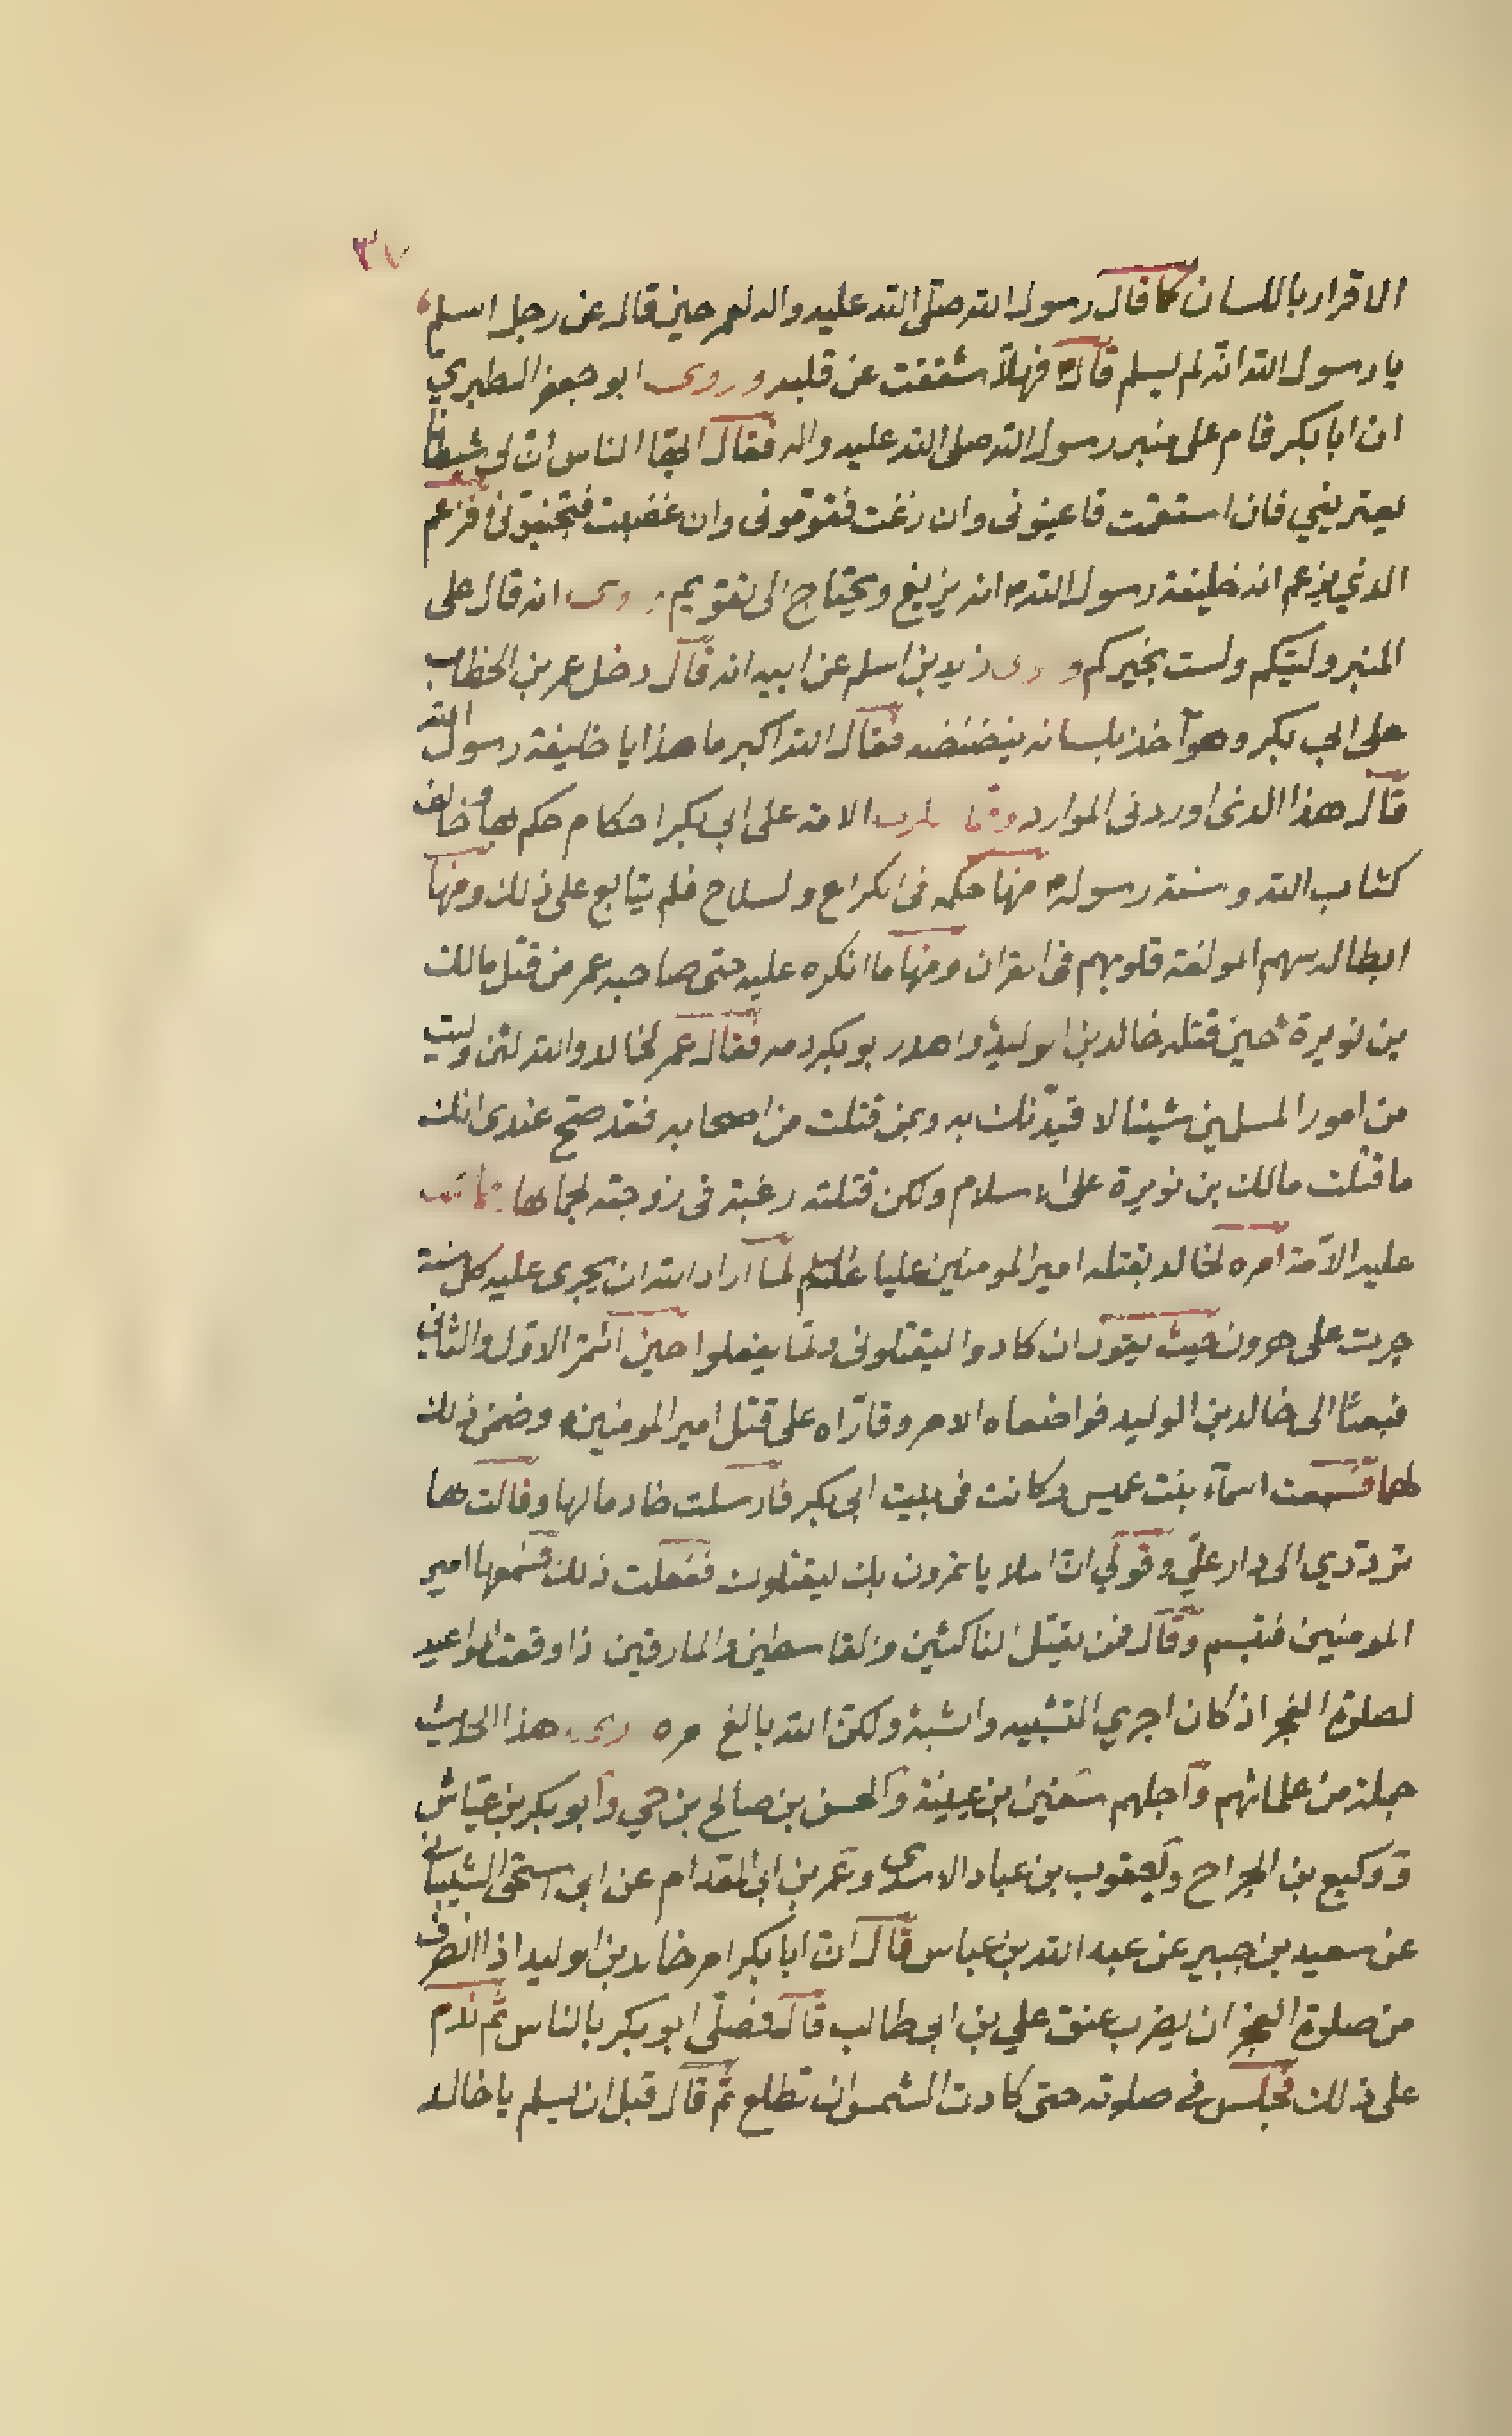 ٣٧
الاقرار باللسان كما قال رسول الله صلى الله عليه واله لعمر حين قال عن رجل اسلم
يا رسول الله انه لم يسلم قال فهلا شققت عن قلبه وروى ابو جعفر الطبري
ان ابا بكر قام على منبر رسول الله صلى الله عليه واله فقال ايها الناس ان لي شيطانا
يعتريني فان استقمت فاعينونى وان زغت فقومونى وان غضبت فتجنبونى فزعم
الذي يزعم انه خليفة رسول الله انه يزيغ ويحتاج الى تقويم وروى انه قال على
المنبر وليتكم ولست بخيركم وروى زيد بن اسلم عن ابيه انه قال دخل عمر بن الخطاب
على ابي بكر وهو آخذ بلسانه ينضنضه فقال الله اكبر ما هذا يا خليفة رسول الله
قال هذا الذى اوردنى الموارد ومما الامة على ابي بكر احكام حكم بها وخالف
كتاب الله وسنة رسوله منها حكمه فى الكراع والسلاح فلم يتابع على ذلك ومنها
ابطاله سهم المولفة قلوبهم فى القران ومنها ما انكره عليه حتى صاحبه عمر من قتل مالك
بن نويرة حين قتله خالد بن الوليد واهدر بو بكر دمه فقال عمر لخالد والله لئن وليت
من امور المسلمين شيئا لا قيدنك به وبمن قتلت من اصحابه فقد صح عندى انك
ما قتلت مالك بن نويرة على الاسلام ولكن قتلته رغبة فى زوجته لجمالها
عليه الامة امره لخالد بقتله امير المومنين عليا عليه السلم لما اراد الله ان يجرى عليه كل سنة
جرت على هرون حيث يقول ان كادوا ليقتلونى ولما يفعلوا حين ائتمر الاول والثانى
فبعثا الى خالد بن الوليد فواضعاه الامر وقارّاه على قتل امير المومنين وضمن ذلك
لهما فسمعت اسمآء بنت عميس وكانت فى بيت ابى بكر فارسلت خادما لها وقالت لها
ترددي الى دار علي وقولي ان الملا ياتمرون بك ليقتلوك ففعلت ذلك فسمعها امير
المومنين فتبسم وقال فمن يقتل الناكثين والقاسطين والمارقين ذا وقعت المواعيد
لصلوة الفجر اذ كان اجري التشبيه والشبه ولكن الله بالغ امره روى هذا الحديث
جملة من علمائهم واجلهم سفين بن عيينة والحسن بن صالح بن حي وابو بكر بن عياش
ووكيع بن الجراح ويعقوب بن عباد الاسدى وعمر بن ابى المقدام عن ابى اسحق الشيبانى
عن سعيد بن جبير عن عبد الله بن عباس قال ان ابا بكر امر خالد بن الوليد اذا انصرف
من صلوة الفجر ان يضرب عنق علي بن ابى طالب قال فصلى ابو بكر بالناس ثم ندم
على ذلك فجلس في صلوته حتى كادت الشمس ان تطلع ثم قال قبل ان يسلم يا خالد